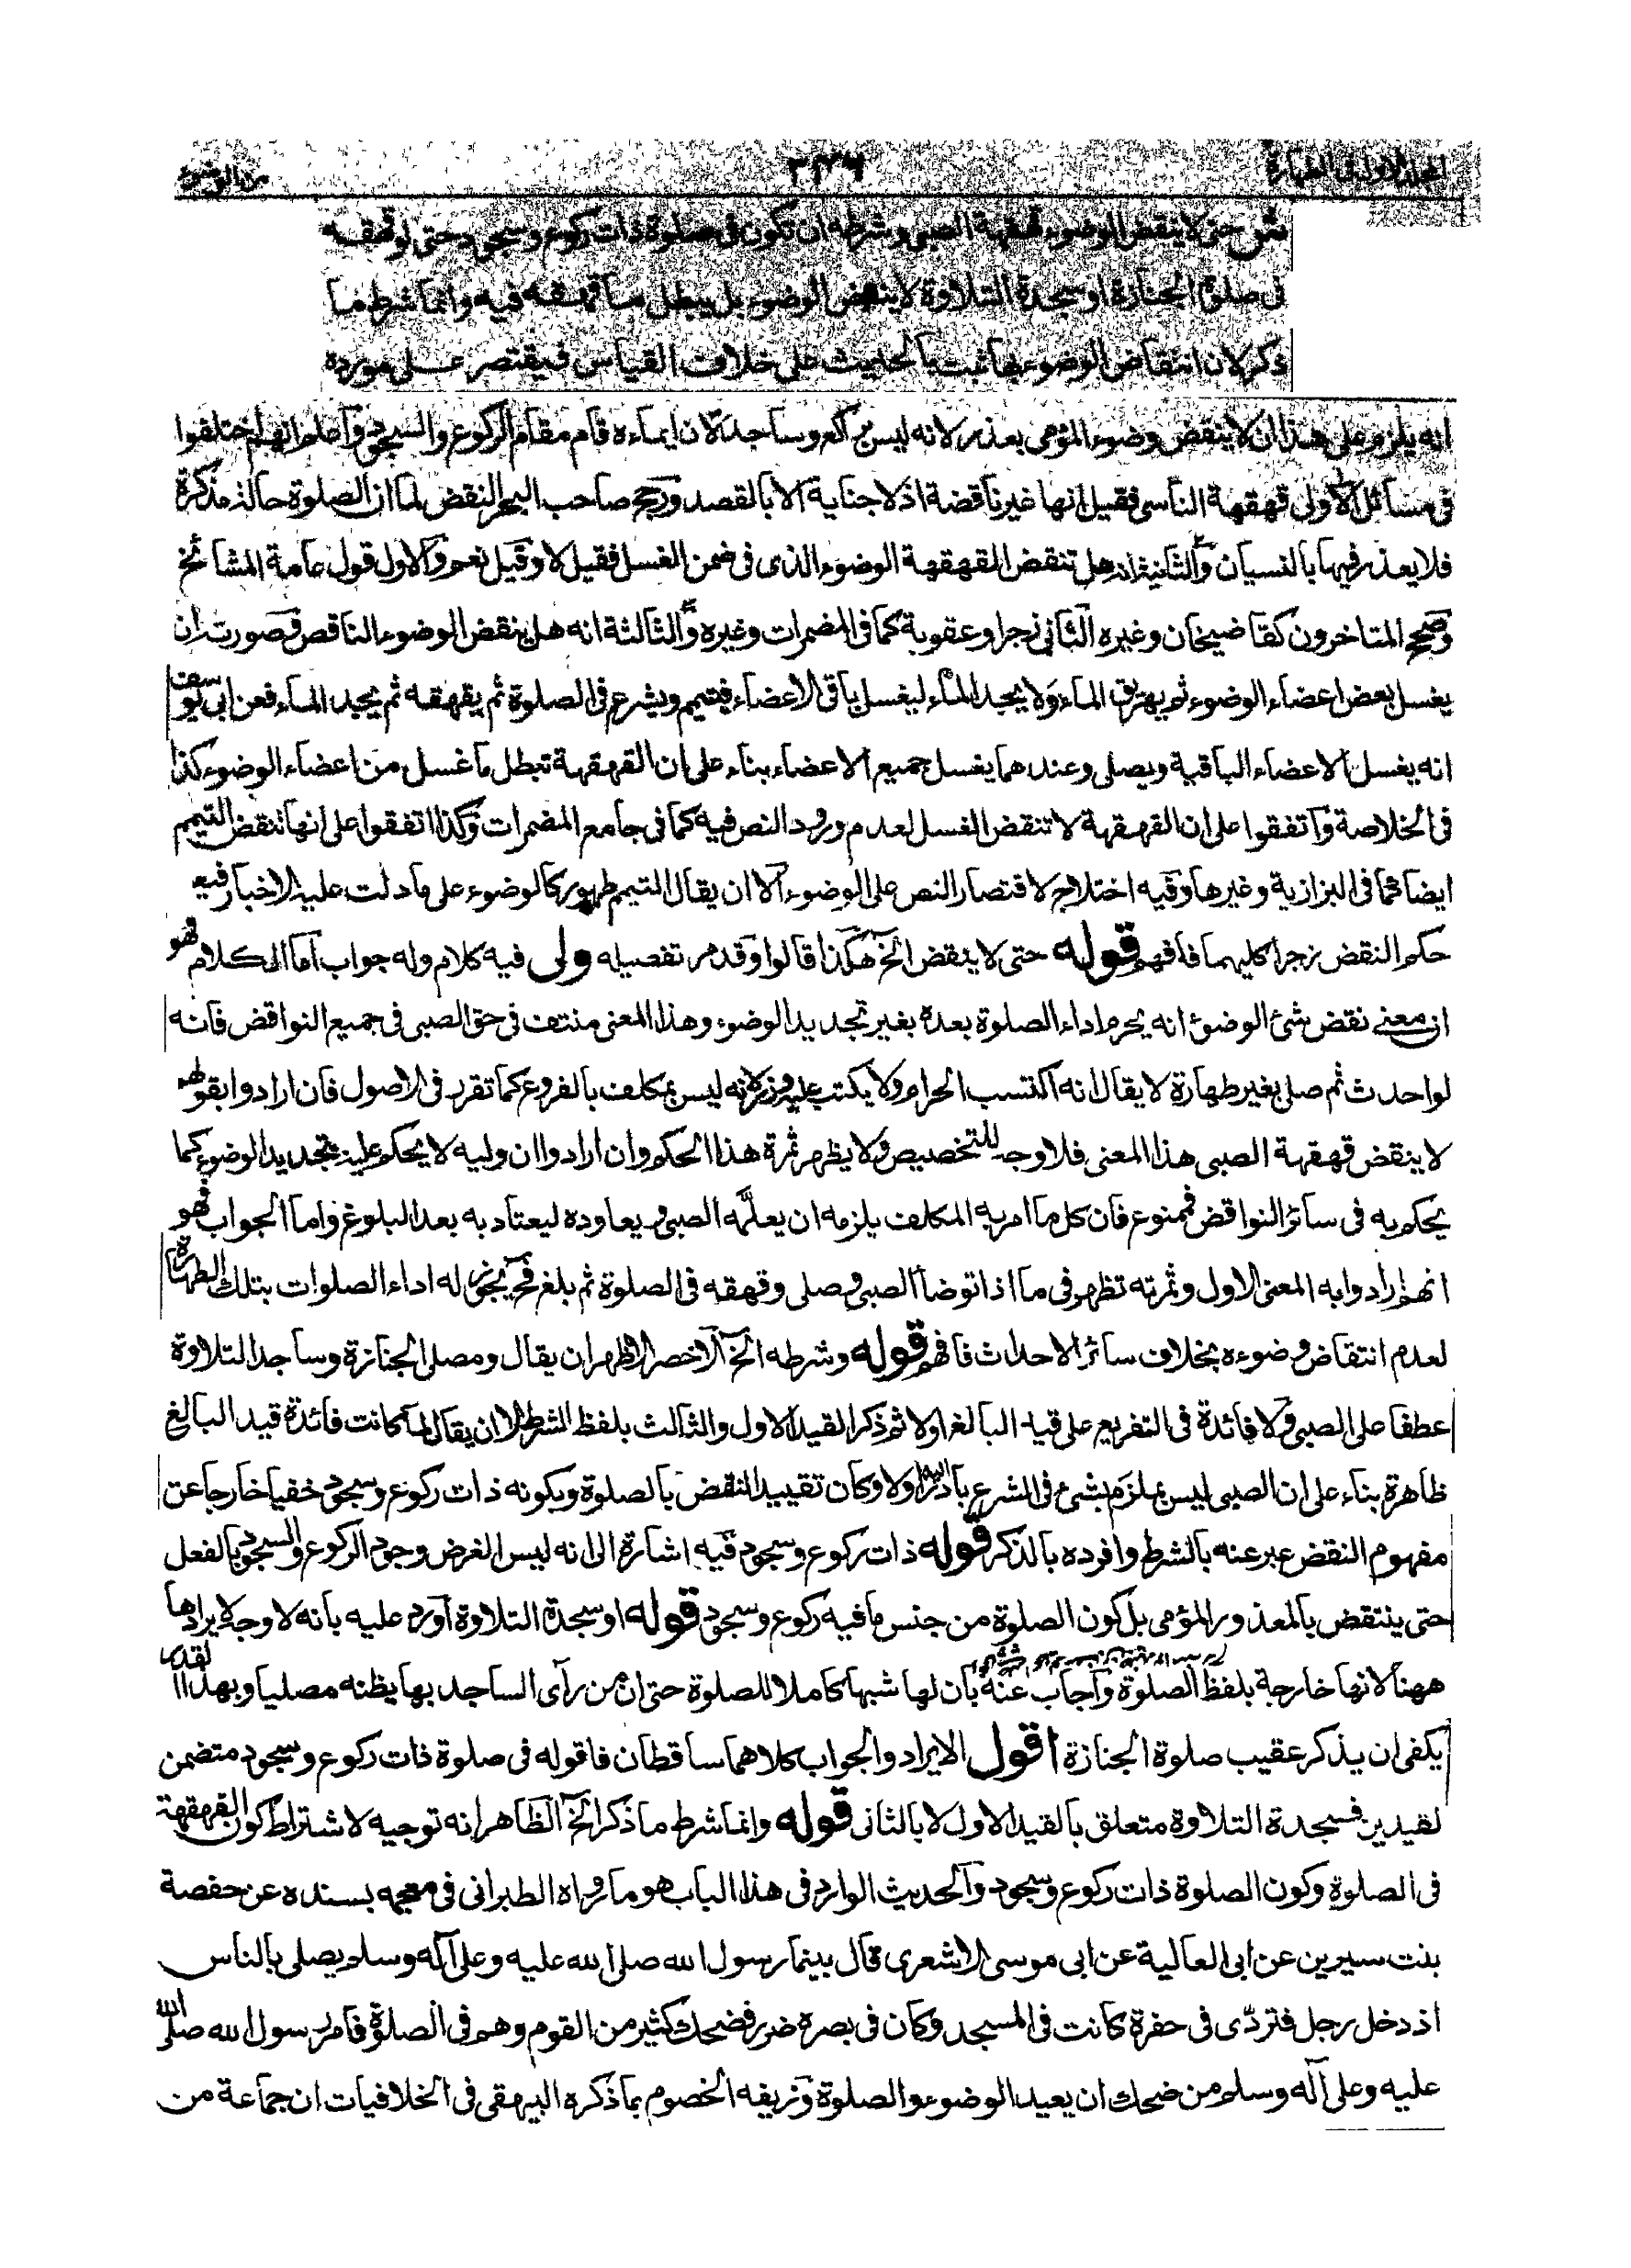 المجلد الاول فى الطهارة ٣٢٦ من الوضوء
ش حتى لا ينقض الوضوء قهقهة الصبى وشرطه ان تكون فى صلوة ذات ركوع وسجود حتى لو قهقه
فى صلوة الجنازة او سجدة التلاوة لا ينقض الوضوء بل يبطل ما قهقه فيه وانما شرط ما
ذكر لان انتقاض الوضوء بها ثبت بالحديث على خلاف القياس فيقتصر على مورده
انه يلزم على هذا ان لا ينقض وضوء المؤمى بعذر لانه ليس براكع وساجد لان ايماءه قام مقام الركوع والسجود واعلم انهم اختلفوا
فى مسائل الاولى قهقهة الناسى فقيل انها غير ناقضة اذ لا جناية الا بالقصد ورجح صاحب البحر النقض لما ان الصلوة حالة مذكرة
فلا يعذر فيها بالنسيان والثانية انه هل تنقض القهقهة الوضوء الذى فى ضمن الغسل فقيل لا وقيل نعم والاول قول عامة المشائخ
وصحح المتاخرون كقاضيخان وغيره الثانى زجرا وعقوبة كما فى المضمرات وغيره والثالثة انه هل ينقض الوضوء الناقص وصورته ان
يغسل بعض اعضاء الوضوء ثم يهريق الماء ولا يجد الماء ليغسل باقى الاعضاء فيتيمم ويشرع فى الصلوة ثم يقهقه ثم يجد الماء فعن ابى يوسف
انه يغسل الاعضاء الباقية ويصلى وعندهما يغسل جميع الاعضاء بناء على ان القهقهة تبطل ما غسل من اعضاء الوضوء كذا
فى الخلاصة واتفقوا على ان القهقهة لا تنقض الغسل لعدم ورود النص فيه كما فى جامع المضمرات وكذا اتفقوا على انها تنقض التيمم
ايضا كما فى البزازية وغيرها وفيه اختلاج لاقتصار النص على الوضوء الا ان يقال التيمم طهور كالوضوء على ما دلت عليه الاخبار فيه
حكم النقض زجرا كليهما فافهم قوله حتى لا ينقض الخ هكذا قالوا وقد مر تفصيله ولى فيه كلام وله جواب اما الكلام فهو
ان معنى نقض شئ الوضوء انه يحرم اداء الصلوة بعده بغير تجديد الوضوء وهذا المعنى منتف فى حق الصبى فى جميع النواقض فانه
لو احدث ثم صلى بغير طهارة لا يقال انه اكتسب الحرام ولا يكتب عليه وزر لانه ليس بمكلف بالفروع كما تقرر فى الاصول فان ارادوا بقولهم
لا ينقض قهقهة الصبى هذا المعنى فلا وجه للتخصيص ولا يظهر ثمرة هذا الحكم وان ارادوا ان وليه لا يحكم عليه بتجديد الوضوء كما
يحكم به فى سائر النواقض فممنوع فان كل ما امر به المكلف يلزمه ان يعلمه الصبى ويعاوده ليعتاد به بعد البلوغ واما الجواب فهو
انهم ارادوا به المعنى الاول وثمرته تظهر فى ما اذا توضأ الصبى وصلى وقهقه فى الصلوة ثم بلغ فح يجوز له اداء الصلوات بتلك الطهارة
لعدم انتقاض وضوءه بخلاف سائر الاحداث فافهم قوله وشرطه الخ الاخصر الاظهر ان يقال ومصلى الجنازة وساجد التلاوة
عطفا على الصبى ولا فائدة فى التفريع على قيد البالغ اولا ثم ذكر القيد الاول والثالث بلفظ الشرط الا ان يقال لما كانت فائدة قيد البالغ
ظاهرة بناء على ان الصبى ليس بملزم بشئ فى الشرع اولا وكان تقييد النقض بالصلوة وبكونه ذات ركوع وسجود خفيا خارجا عن
مفهوم النقض عبر عنه بالشرط وافرده بالذكر قوله ذات ركوع وسجود فيه اشارة الى انه ليس الغرض وجود الركوع والسجود بالفعل
حتى ينتقض بالمعذور المؤمى بل كون الصلوة من جنس ما فيه ركوع وسجود قوله او سجدة التلاوة اورد عليه بانه لا وجه لايرادها
ههنا لانها خارجة بلفظ الصلوة واجاب عنه بان لها شبها كاملا للصلوة حتى ان من رآى الساجد بها يظنه مصليا وبهذا القدر
يكفى ان يذكر عقيب صلوة الجنازة اقول الايراد والجواب كلاهما ساقطان فان قوله فى صلوة ذات ركوع وسجود متضمن
لقيدين فسجدة التلاوة متعلق بالقيد الاول لا بالثانى قوله وانما شرط ما ذكر الخ الظاهر انه توجيه لاشتراط كون القهقهة
فى الصلوة وكون الصلوة ذات ركوع وسجود والحديث الوارد فى هذا الباب هو ما رواه الطبرانى فى معجمه بسنده عن حفصة
بنت سيرين عن ابى العالية عن ابى موسى الاشعرى قال بينما رسول الله صلى الله عليه وعلى آله وسلم يصلى بالناس
اذ دخل رجل فتردّى فى حفرة كانت فى المسجد وكان فى بصره ضرر فضحك كثير من القوم وهم فى الصلوة فامر رسول الله صلى الله
عليه وعلى آله وسلم من ضحك ان يعيد الوضوء والصلوة وزيفه الخصوم بما ذكره البيهقى فى الخلافيات ان جماعة من